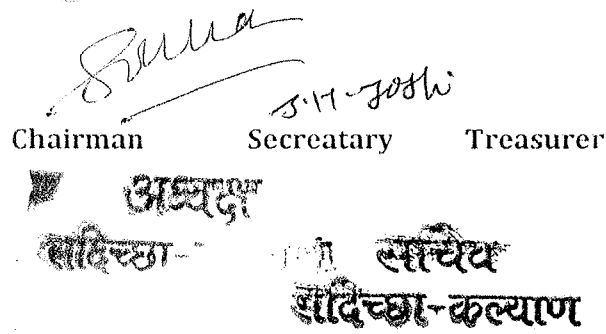 J.H. Joshi
Chairman Secreatary Treasurer
अध्यक्ष
सदिच्छा-
सचिव
सदिच्छा-कल्याण